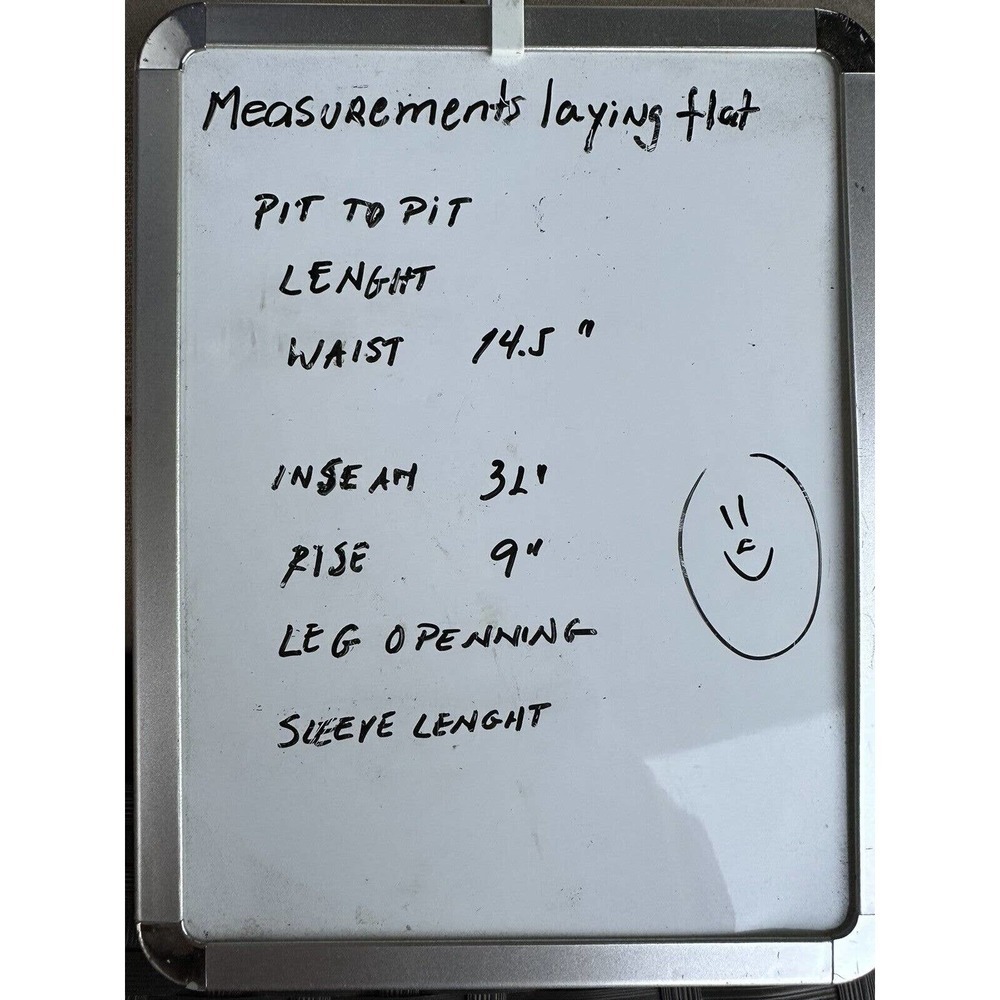 Measurements laying flat
PIT TO PIT
LENGHT
WAIST 14.5"
INSEAM 31"
RISE 9"
LEG OPENNING
SLEEVE LENGHT